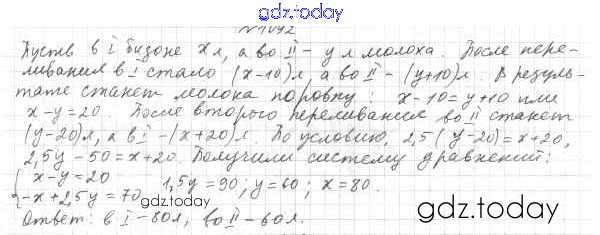 gdz.today
№1092
Пусть в I бидоне x л, а во II – y л молока. После пере-
ливания в I стало (x-10) л, а во II – (y+10) л. В резуль-
тате станет молока поровну: x-10=y+10 или
x-y=20. После второго переливания во II станет
(y-20) л, а в I – (x+20) л. По условию, 2,5(y-20)=x+20,
2,5y-50=x+20. Получили систему уравнений:
{ x-y=20
-x+2,5y=70 1,5y=90; y=60; x=80.
Ответ: в I – 80 л, во II – 60 л.
gdz.today